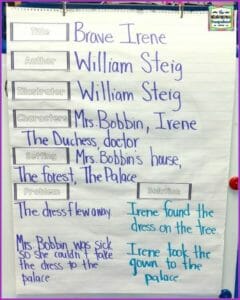 Title Brave Irene
Author William Steig
Illustrator William Steig
Characters Mrs. Bobbin, Irene
The Duchess, doctor
Setting Mrs. Bobbin's house,
The forest, The Palace
Problem
The dress flew away
Mrs. Bobbin was sick
so she couldn't take
the dress to the
palace
Solution
Irene found the
dress on the tree
Irene took the
gown to the
palace